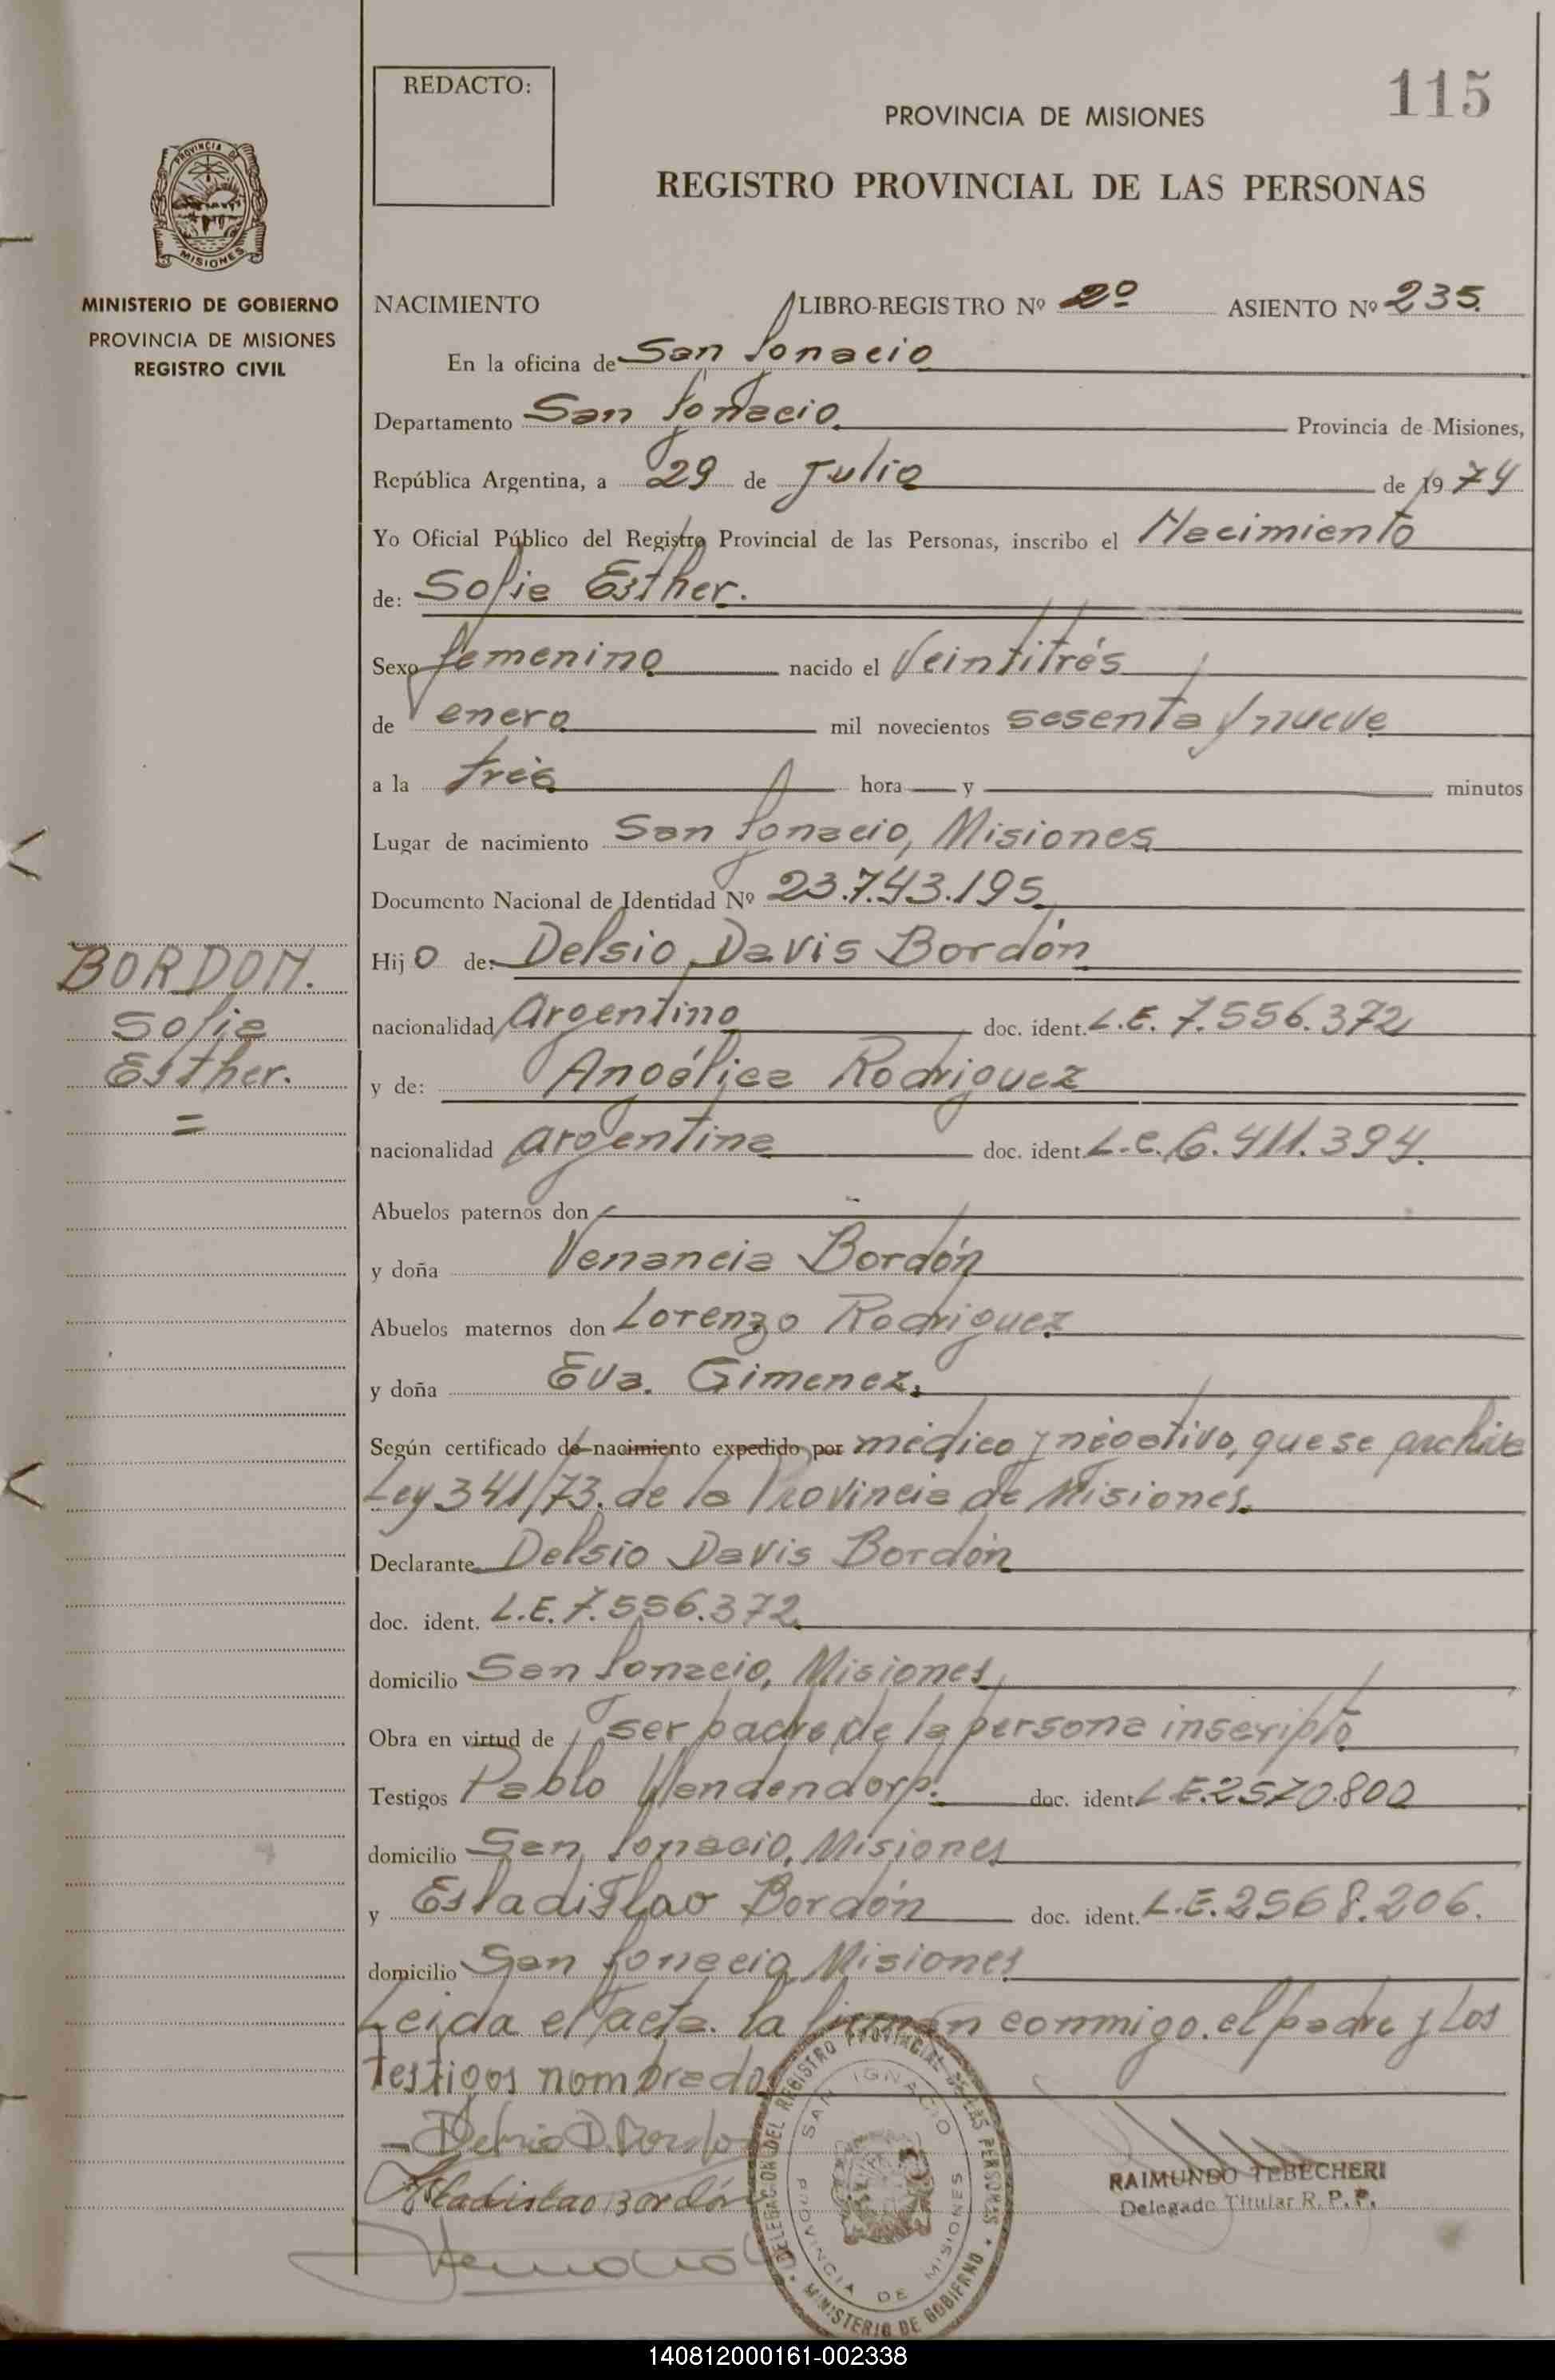 REDACTO:
115
PROVINCIA DE MISIONES
REGISTRO PROVINCIAL DE LAS PERSONAS
PROVINCIA DE
MISIONES
MINISTERIO DE GOBIERNO
PROVINCIA DE MISIONES
REGISTRO CIVIL
NACIMIENTO LIBRO-REGISTRO Nº 2º ASIENTO Nº 235
En la oficina de San Ignacio
Departamento San Ignacio Provincia de Misiones,
República Argentina, a 29 de Julio de 1974
Yo Oficial Público del Registro Provincial de las Personas, inscribo el Nacimiento
de: Sofia Esther.
Sexo femenino nacido el Veintitrés
de enero mil novecientos sesenta y nueve
a la tres hora y minutos
Lugar de nacimiento San Ignacio, Misiones
Documento Nacional de Identidad Nº 23.743.195
Hijo de: Delsio Davis Bordón
nacionalidad Argentino doc. ident. L.E. 7.556.372
y de: Angélica Rodriguez
nacionalidad argentina doc. ident. L.C. 6.411.394.
BORDON.
Sofia
Esther.
=
Abuelos paternos don
y doña Venancia Bordón
Abuelos maternos don Lorenzo Rodriguez
y doña Eva. Gimenez.
Según certificado de nacimiento expedido por médico y negativo, que se archiva
Ley 341/73. de la Provincia de Misiones.
Declarante Delsio Davis Bordón
doc. ident. L.E. 7.556.372
domicilio San Ignacio, Misiones
Obra en virtud de ser padre de la persona inscripto
Testigos Pablo doc. ident. L.E. 2570.800
domicilio San Ignacio, Misiones
y Estadislao Bordón doc. ident. L.E. 2568.206.
domicilio San Ignacio Misiones
Leida el acta. la firman conmigo. el padre y los
testigos nombrados
Delsio D. Bordon
Estadislao Bordón
DELEGACION DEL REGISTRO PROVINCIAL DE LAS PERSONAS
SAN IGNACIO
PROVINCIA DE MISIONES
MINISTERIO DE GOBIERNO
RAIMUNDO TEBECHERI
Delegado Titular R. P. P.
140812000161-002338